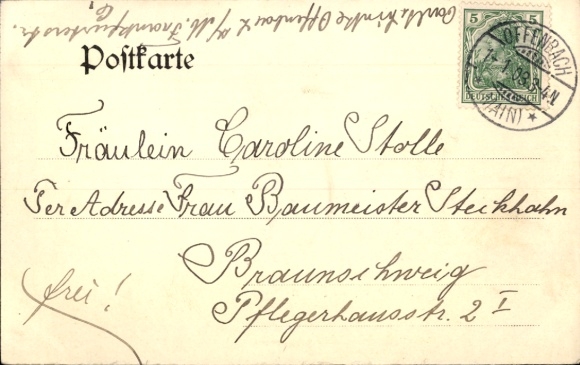 Offenbach a/M. Frankfurterstr.
Postkarte
5 5
DEUTSCHES REICH
OFFENBACH
(MAIN) *
Fräulein Caroline Stolle
Per Adresse Frau Baumeister Steckhahn
Braunschweig
Pflegerhausstr. 2 I
frei!